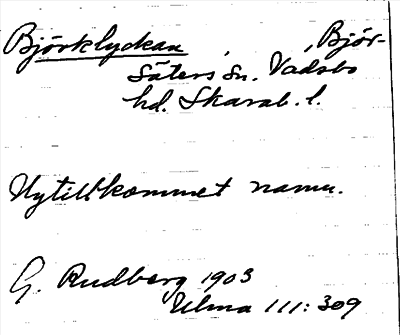 Björklyckan, Björ-
säters sn. Vadsbo
hd. Skarab. l.
Nytillkommet namn.
G. Rudberg 1903
Ulma 111:309